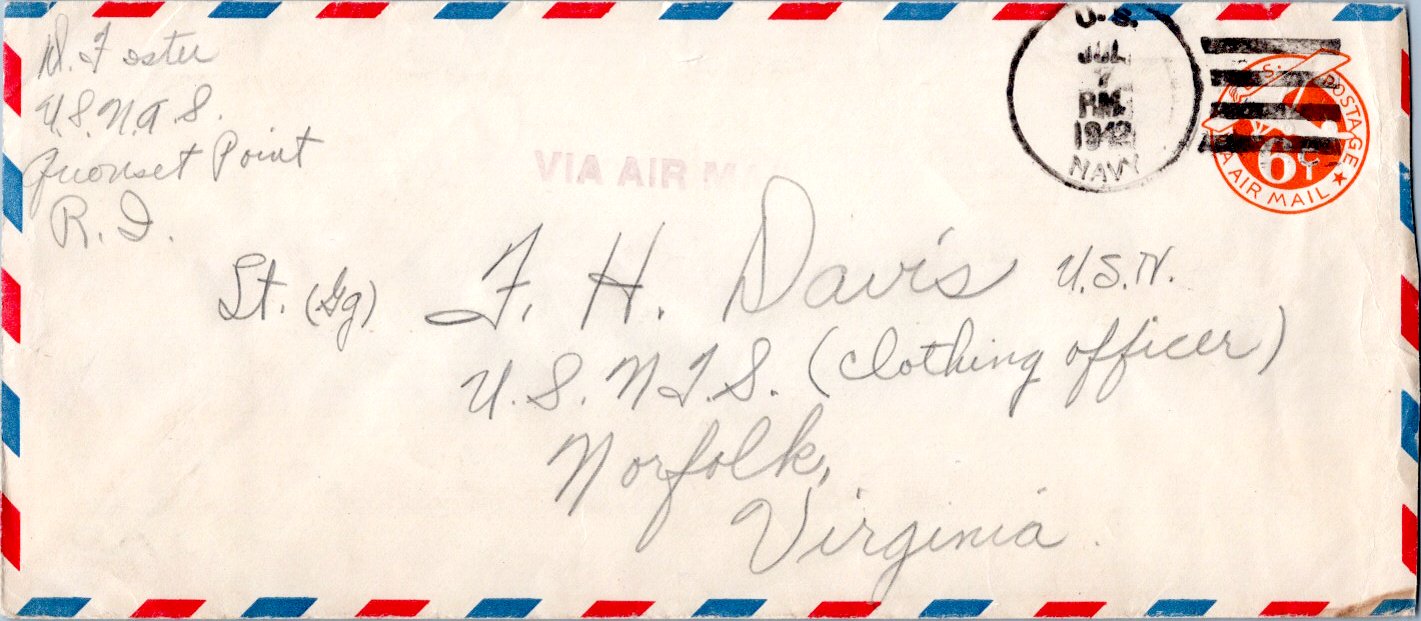 D. Foster
U.S.N.A.S.
Quonset Point
R. I.
VIA AIR MA
U.S.
JUL
7
P.M.
1942
NAVY
U.S. POSTAGE
6¢
VIA AIR MAIL
Lt. (Jg) F. H. Davis U.S.N.
U.S.N.T.S. (clothing officer)
Norfolk,
Virginia.